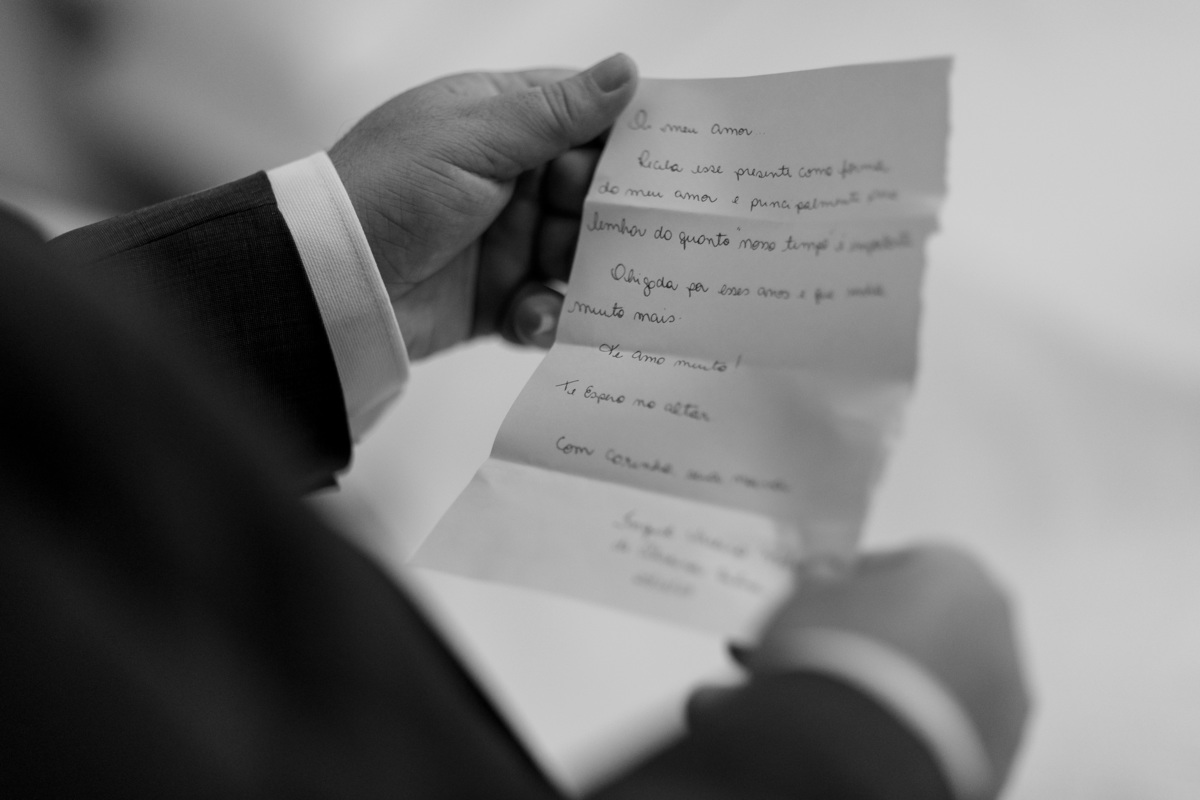 Oi meu amor...
Receba esse presente como forma
do meu amor e principalmente para
lembrar do quanto "nosso tempo" é importante
Obrigada por esses anos e que venha
muito mais.
Te amo muito!
Te Espero no altar
Com carinho sua noiva